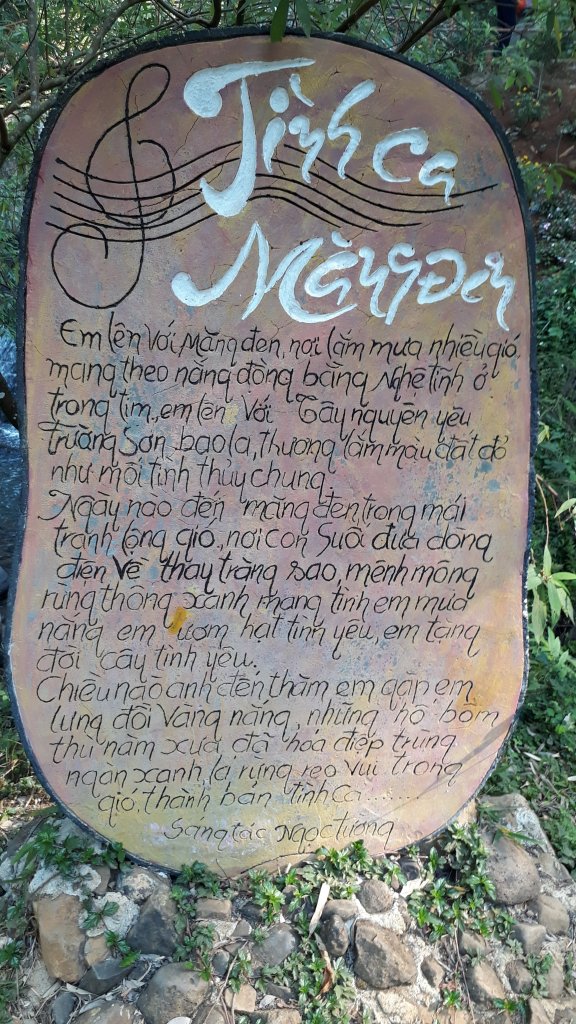 Tình Ca
Măng Đen
Em lên với Măng đen, nơi lắm mưa nhiều gió,
mang theo nắng đồng bằng Nghệ Tĩnh ở
trong tim, em lên với Tây nguyên yêu
trường Sơn bao la, thương lắm màu đất đỏ
như mối tình thủy chung.
Ngày nào đến măng đen, trong mái
tranh lộng gió, nơi con Suối đưa dòng
điện về thay trăng sao, mênh mông
rừng thông xanh, mang tình em mưa
nắng em ươm hạt tình yêu, em tặng
đời cây tình yêu.
Chiều nào anh đến thăm em gặp em
lưng đồi vàng nắng, những hố bom
thù năm xưa đã hóa điệp trùng
ngàn xanh, lá rừng reo vui trong
gió, thành bản tình ca........
Sáng tác Ngọc Tường